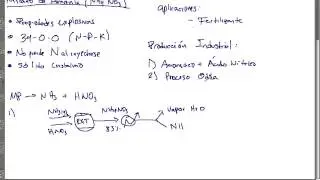 Nitrato de Amonio [NH₄NO₃]
• Propiedades explosivas
• 34-0-0 (N-P-K)
• No puede Nalinyectarse
• Sólido Cristalino
Aplicaciones:
- Fertilizante
Producción Industrial:
1) Amoniaco + Ácido Nítrico
2) Proceso Odda
MP → NH₃ + HNO₃
1)
NH₃(g)
HNO₃
RXT
NH₄NO₃
83%
Vapor H₂O
NH